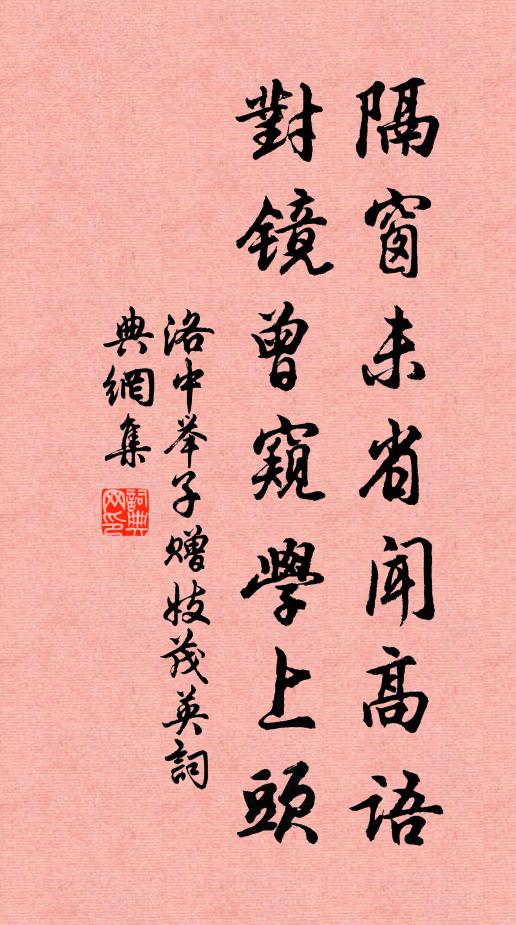 隔窗未省闻高語
對镜曾窺學上頭
洛中举子赠妓茂英詞
典網集
詞典网印